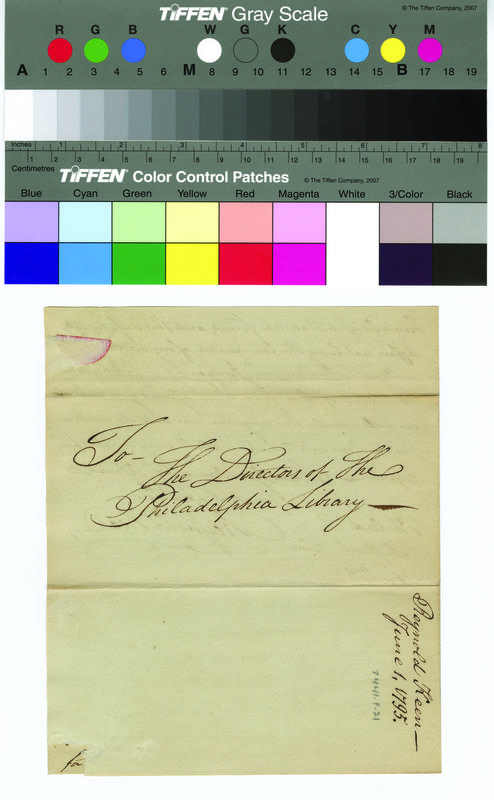 TIFFEN Gray Scale
© The Tiffen Company, 2007
R G B W G K C Y M
A 1 2 3 4 5 6 M 8 9 10 11 12 13 14 15 B 17 18 19
Inches 1 2 3 4 5 6 7 8
Centimetres 1 2 3 4 5 6 7 8 9 10 11 12 13 14 15 16 17 18 19
TIFFEN Color Control Patches
© The Tiffen Company, 2007
Blue Cyan Green Yellow Red Magenta White 3/Color Black
To—
The Directors of The
Philadelphia Library—
Reynold Keen—
June 1, 1795.
7441.F.21
for